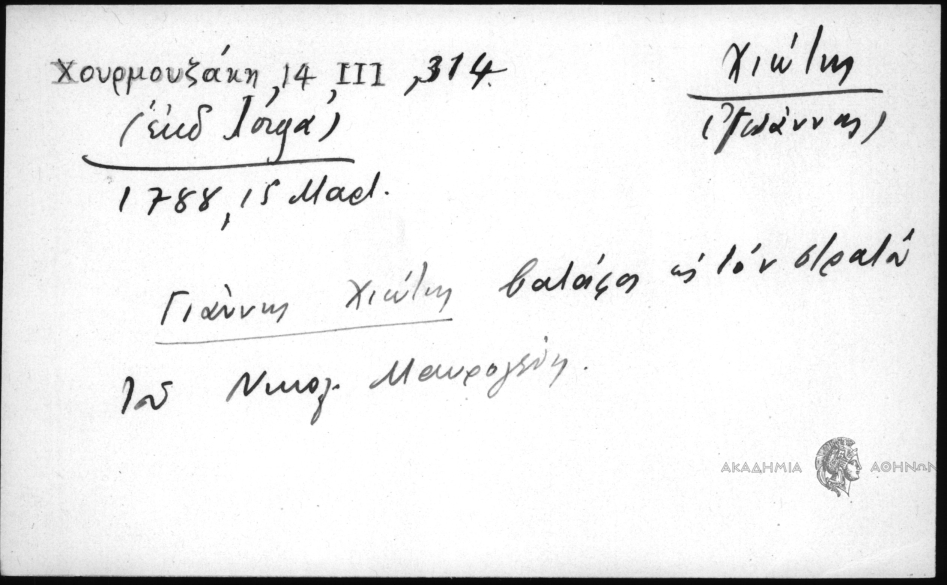 Χουρμουζάκη, 14, III, 314.
(ἐκδ Ἰόργα)
1788, 15 Μαρτ.
Χιώτης
(Γιάννης)
Γιάννης Χιώτης εἰς τὸν στρατὸ
τοῦ Νικολ. Μαυρογένη.
ΑΚΑΔΗΜΙΑ ΑΘΗΝΩΝ